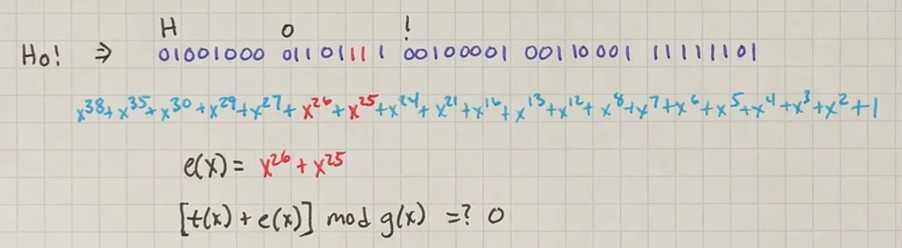 H o !
Ho! ⇒ 01001000 01101111 00100001 00110001 11111101
x³⁸+x³⁵+x³⁰+x²⁹+x²⁷+x²⁶+x²⁵+x²⁴+x²¹+x¹⁶+x¹³+x¹²+x⁸+x⁷+x⁶+x⁵+x⁴+x³+x²+1
e(x) = x²⁶+x²⁵
[t(x)+e(x)] mod g(x) =? 0